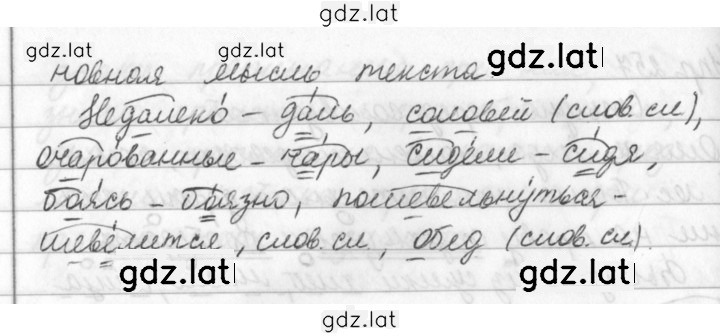 gdz.lat
gdz.lat gdz.lat gdz.lat
новная мысль текста
Недалеко - даль, соловей (слов. сл),
очарованные - чары, сидели - сидя,
боясь - боязно, пошевельнуться -
шевелится, слов. сл, обед (слов. сл).
gdz.lat
gdz.lat